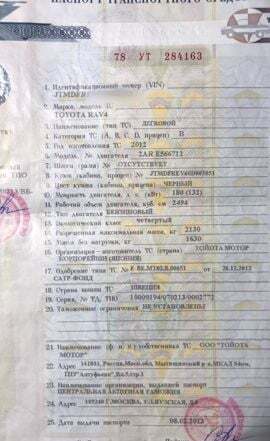 ПАСПОРТ ТРАНСПОРТНОГО СРЕДС
78 УТ 284163
1. Идентификационный номер (VIN)
2. Марка, модель
TOYOTA RAV4
3. Наименование (тип ТС) ЛЕГКОВОЙ
4. Категория ТС (A, B, C, D, прицеп) B
5. Год изготовления ТС 2012
6. Модель, № двигателя 2AR E566712
7. Шасси (рама) № ОТСУТСТВУЕТ
8. Кузов (кабина, прицеп) №
9. Цвет кузова (кабины, прицепа) ЧЕРНЫЙ
10. Мощность двигателя, л. с. (кВт) 180 (132)
11. Рабочий объем двигателя, куб. см 2494
12. Тип двигателя БЕНЗИНОВЫЙ
13. Экологический класс четвертый
14. Разрешенная максимальная масса, кг 2130
15. Масса без нагрузки, кг 1630
16. Организация - изготовитель ТС (страна) ТОЙОТА МОТОР
КОРПОРЕЙШН (ЯПОНИЯ)
17. Одобрение типа ТС № от 26.12.2012
САТР-ФОНД
18. Страна вывоза ТС
19. Серия, № ТД, ТПО
20. Таможенные ограничения НЕ УСТАНОВЛЕНЫ
21. Наименование (ф. и. о.) собственника ТС ООО "ТОЙОТА
МОТОР"
22. Адрес 141031, Россия, Моск.обл, Мытищинский р-н, МКАД 84км,
23. Наименование организации, выдавшей паспорт
ЦЕНТРАЛЬНАЯ АКЦИЗНАЯ ТАМОЖНЯ
24. Адрес 109240 Г.МОСКВА,
25. Дата выдачи паспорта 08.02.2013